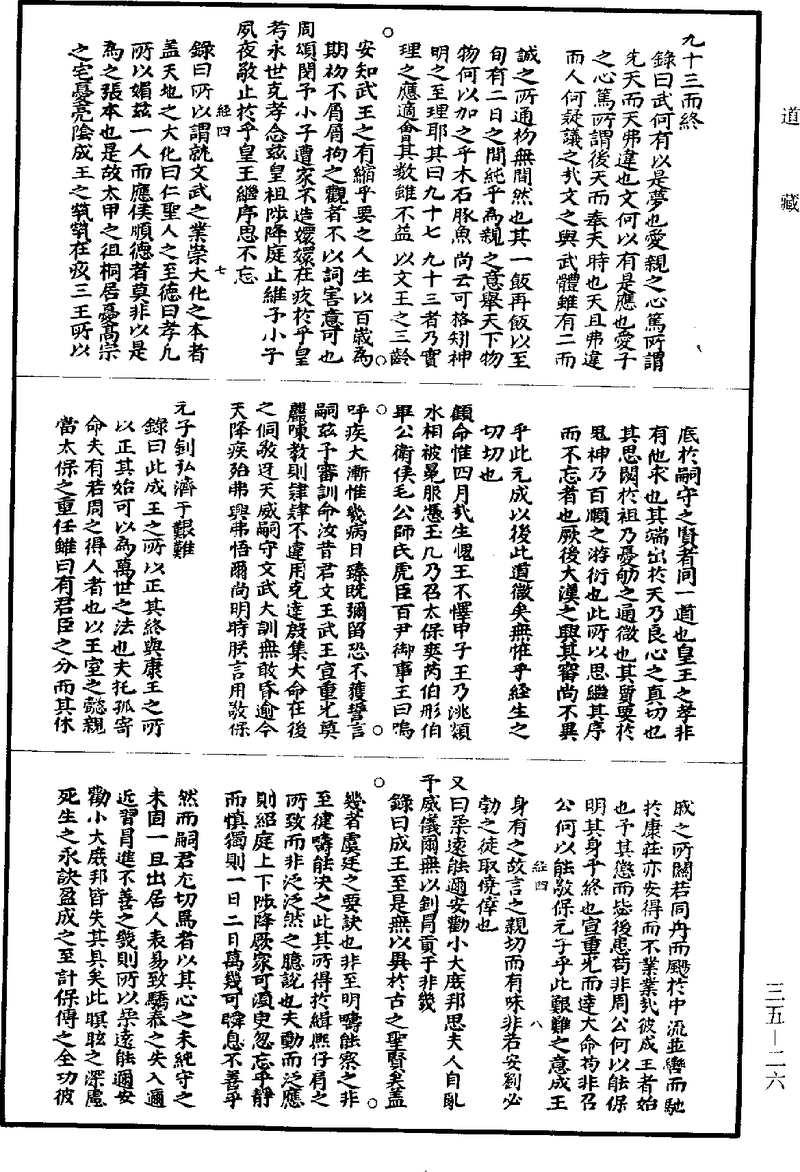 道藏
三五—二六
九十三而終
錄曰武何有以是夢也愛親之心篤所謂
先天而天弗違也文何以有是應也愛子
之心篤所謂後天而奉天時也天且弗違
而人何疑議之哉文之與武體雖有二而
誠之所通初無間然也其一飯再飯以至
旬有二日之間純乎為親之意舉天下物
物何以加之乎木石豚魚尚云可格矧神
明之至理耶其曰九十七九十三者乃實
理之應適會其數雖不益以文王之三齡
安知武王之有縮乎要之人生以百歲為
期初不屑屑拘之觀者不以詞害意可也
周頌閔予小子遭家不造嬛嬛在疚於乎皇
考永世克孝念茲皇祖陟降庭止維予小子
夙夜敬止於乎皇王繼序思不忘
經四 七
錄曰所以謂就文武之業崇大化之本者
蓋天地之大化曰仁聖人之至德曰孝凡
所以媚茲一人而應侯順德者莫非以是
為之張本也是故太甲之徂桐居憂高宗
之宅憂亮陰成王之煢煢在疚三王所以
底於嗣守之賢者同一道也皇王之孝非
有他求也其端出於天乃良心之真切也
其思閔於祖乃憂舫之通微也其質要於
鬼神乃百順之游衍也此所以思繼其序
而不忘者也厥後大漢之興其審尚不異
乎此元成以後此道微矣無惟乎經生之
切切也
顧命惟四月哉生愧王不懌甲子王乃洮頮
水相被冕服憑玉几乃召太保奭芮伯彤伯
畢公衛侯毛公師氏虎臣百尹御事王曰嗚
呼疾大漸惟幾病日臻既彌留恐不獲誓言
嗣茲予審訓命汝昔君文王武王宣重光奠
麗陳教則肄肄不違用克達殷集大命在後
之侗敬迓天威嗣守文武大訓無敢昏逾今
天降疾殆弗興弗悟爾尚明時朕言用敬保
元子釗弘濟于艱難
錄曰此成王之所以正其終與康王之所
以正其始可以為萬世之法也夫托孤寄
命夫有若周之得人者也以王室之懿親
當太保之重任雖曰有君臣之分而其休
戚之所關若同舟而颺於中流並轡而馳
於康莊亦安得而不業業哉彼成王者始
也予其懲而毖後患苟非周公何以能保
明其身乎終也宣重光而達大命苟非召
公何以能敬保元子乎此艱難之意成王
經四 八
身有之故言之親切而有味非若安劉必
勃之徒取僥倖也
又曰柔遠能邇安勸小大庶邦思夫人自亂
于威儀爾無以釗冒貢于非幾
錄曰成王至是無以異於古之聖賢矣蓋
幾者虞廷之要訣也非至明疇能察之非
至健疇能決之此其所得於緝熙仔肩之
所致而非泛泛然之臆說也夫動而泛應
則紹庭上下陟降厥家可須臾忽忘乎靜
而慎獨則一日二日萬幾可瞬息不善乎
然而嗣君尤切焉者以其心之未純守之
未固一旦出居人表易致驕泰之失入邇
近習冒進不善之幾則所以柔遠能邇安
勸小大庶邦皆失其具矣此暝眩之深慮
死生之永訣盈成之至計保傅之全功彼